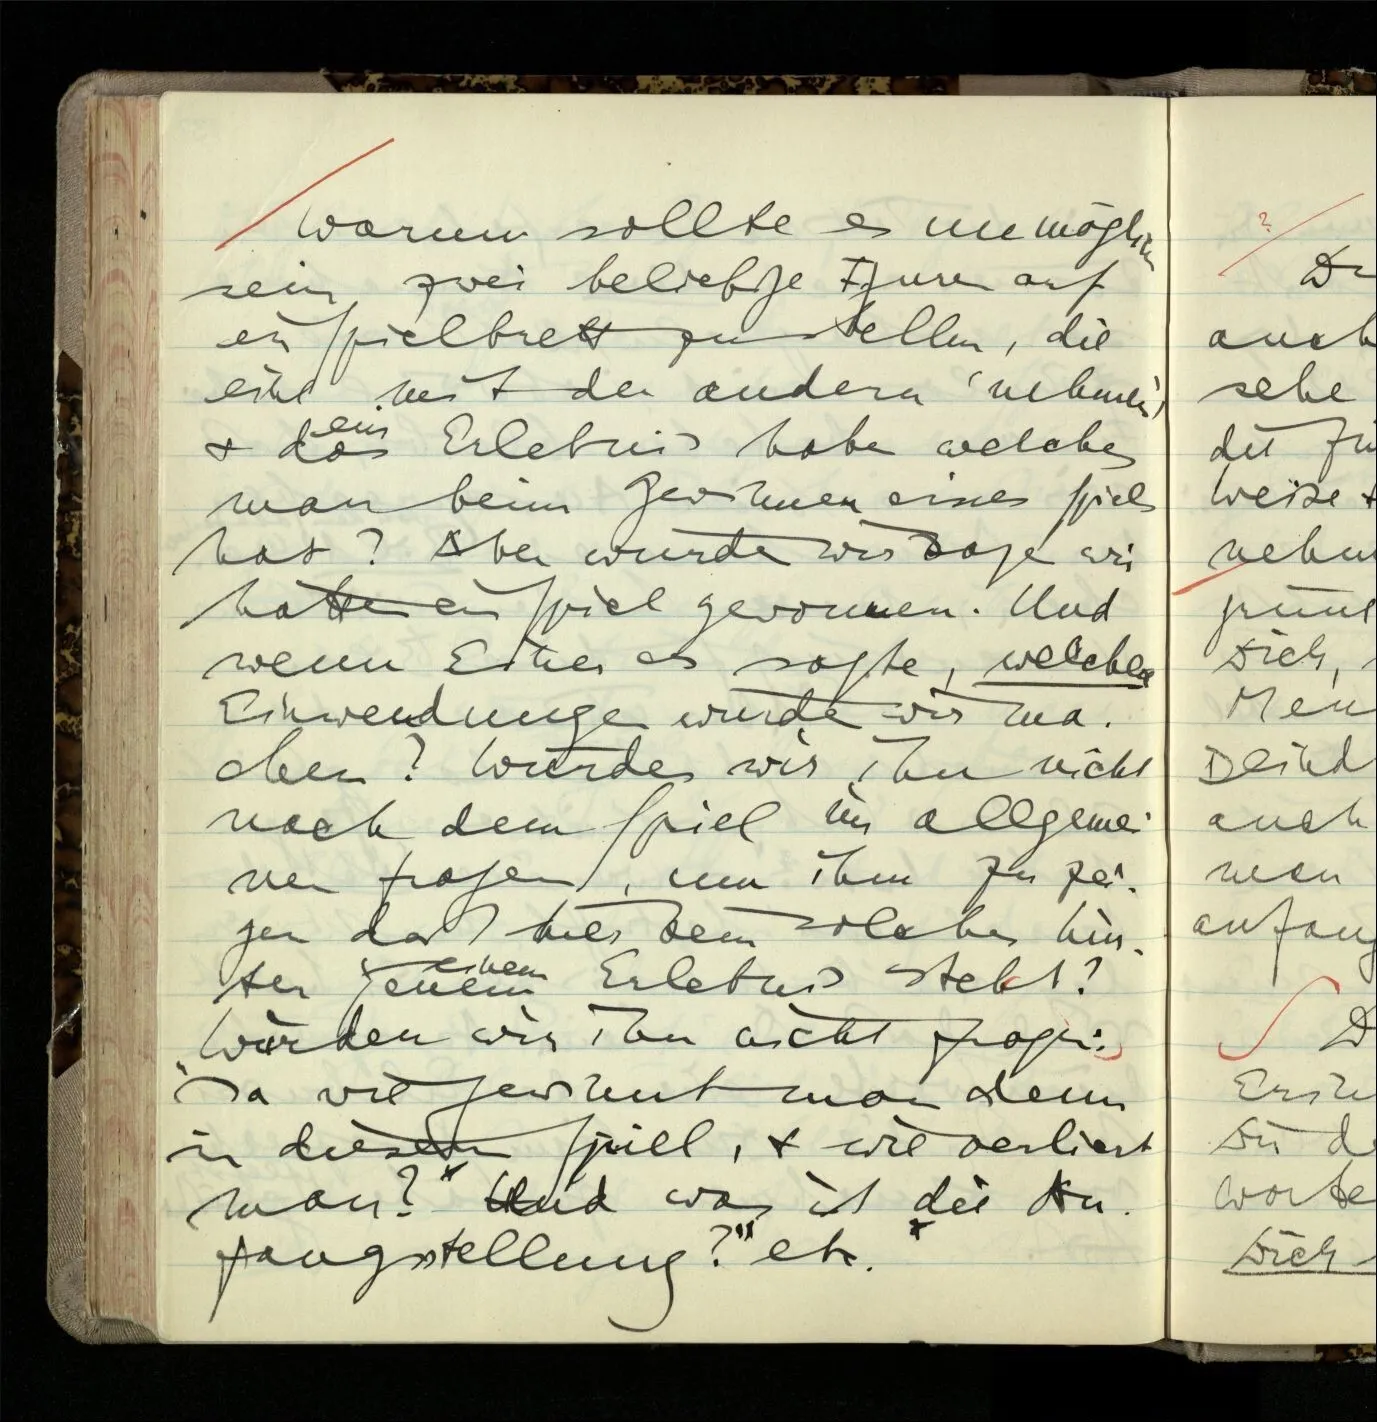 Warum sollte es unmöglich
sein, zwei beliebige Figuren auf
ein Spielbrett zu stellen, die
eine mit der andern ‘nehmen’,
& das ein Erlebnis haben welches
man beim Gewinnen eines Spiels
hat? Aber würden wir sagen wir
hätten ein Spiel gewonnen. Und
wenn Einer es sagte, welche
Einwendungen würden wir ma-
chen? Würden wir ihn nicht
nach dem Spiel im allgemei-
nen fragen, um ihm zu zei-
gen daß hier kein solches hin-
ter jenem einem Erlebnis steht?
Würden wir ihn nicht fragen:
“Ja wie gewinnt man denn
in diesem Spiel, & wie verliert
man?” “Und was ist die An-
fangsstellung?” etc.
?
auch
sehe
die
weise &
Dich,
auch
man
Dich